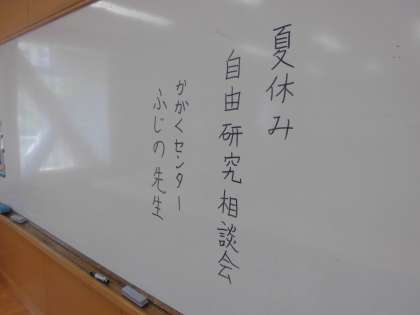 夏休み
自由研究相談会
かがくセンター
ふじの先生